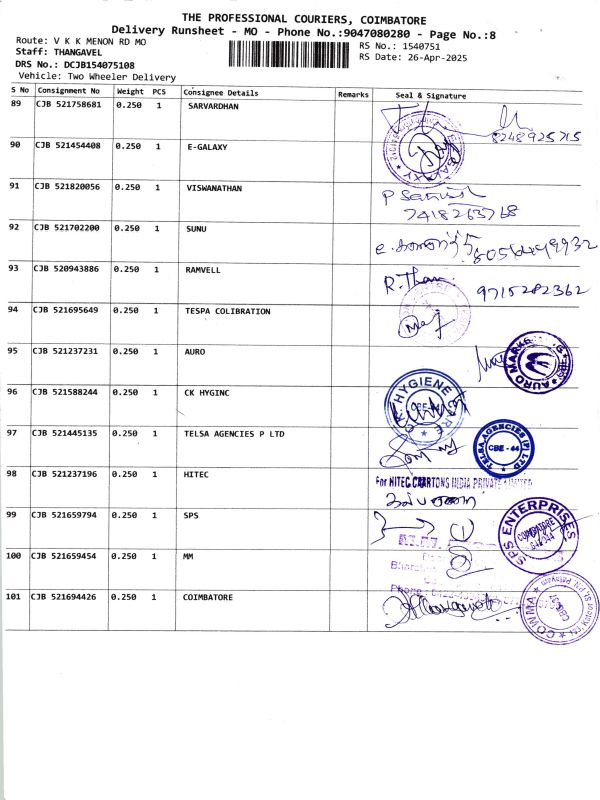 THE PROFESSIONAL COURIERS, COIMBATORE
Delivery Runsheet - MO - Phone No.:9047080280 - Page No.:8
Route: V K K MENON RD MO
RS No.: 1540751
Staff: THANGAVEL
RS Date: 26-Apr-2025
DRS No.: DCJB154075108
Vehicle: Two Wheeler Delivery
S No Consignment No Weight PCS Consignee Details Remarks Seal & Signature
89 CJB 521758681 0.250 1 SARVARDHAN
8248925715
90 CJB 521454408 0.250 1 E-GALAXY
91 CJB 521820056 0.250 1 VISWANATHAN
7418263768
92 CJB 521702200 0.250 1 SUNU
93 CJB 520943886 0.250 1 RAMVELL
R. Tham 9715282362
94 CJB 521695649 0.250 1 TESPA COLIBRATION
95 CJB 521237231 0.250 1 AURO
AURO MARK
96 CJB 521588244 0.250 1 CK HYGINC
HYGIENE CARE
97 CJB 521445135 0.250 1 TELSA AGENCIES P LTD
TELSA AGENCIES (P) LTD
CBE - 44
98 CJB 521237196 0.250 1 HITEC
For HITEC CARTONS INDIA PRIVATE LIMITED
99 CJB 521659794 0.250 1 SPS
SPS ENTERPRISES
COIMBATORE
100 CJB 521659454 0.250 1 MM
101 CJB 521694426 0.250 1 COIMBATORE
COWMA